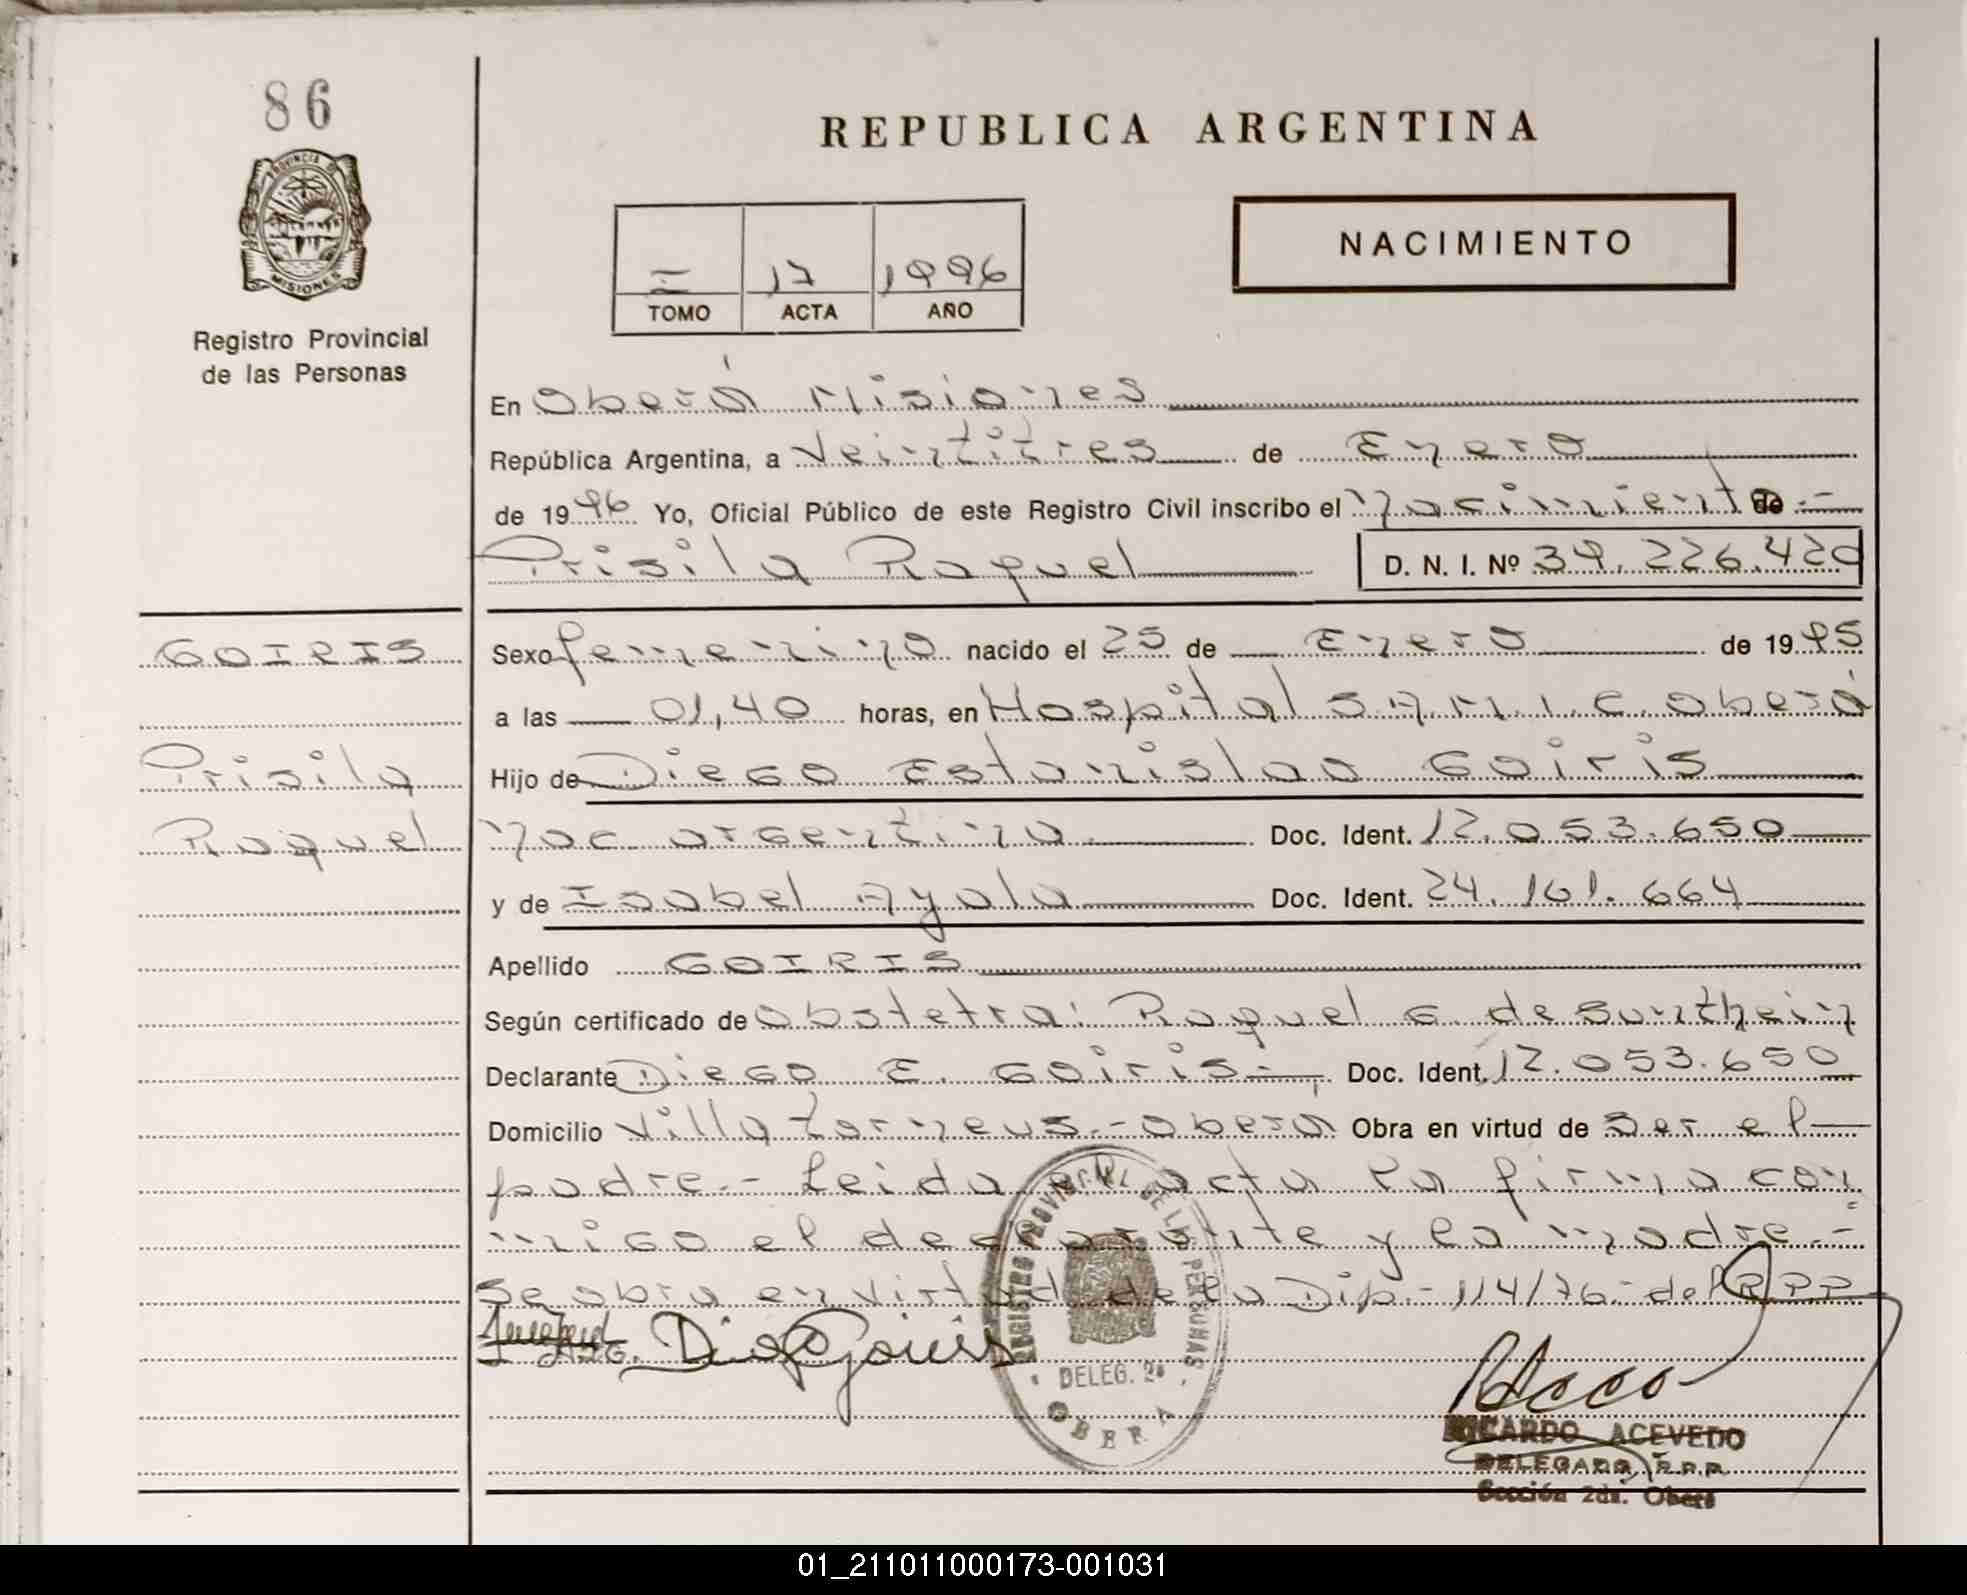 86
PROVINCIA DE
MISIONES
Registro Provincial
de las Personas
REPUBLICA ARGENTINA
NACIMIENTO
17 1996
TOMO ACTA AÑO
En Oberá Misiones
República Argentina, a Veintitres de Enero
de 1996 Yo, Oficial Público de este Registro Civil inscribo el Nacimiento de.-
Prisila Raquel D. N. I. Nº 39.226.420
GOIRIS
Prisila
Raquel
Sexo femenino nacido el 25 de Enero de 1995
a las 01,40 horas, en Hospital S.A.M.I.C. Oberá
Hijo de Diego Estanislao Goiris
Nac argentina Doc. Ident. 12.053.650
y de Isabel Ayala Doc. Ident. 24.161.664
Apellido GOIRIS
Según certificado de Obstetra: Raquel G. de Sunthein
Declarante Diego E. Goiris.- Doc. Ident. 12.053.650
Domicilio Villa Torneus.- Oberá Obra en virtud de ser el
padre.- Leida el acta la firma con
migo el declarante y la madre.-
Se obra en virtud de la Dip.- 114/76.- del R.P.P.
Diego Goiris
REGISTRO PROVINCIAL DE LAS PERSONAS
DELEG. 2a
OBERA
RICARDO ACEVEDO
DELEGADO R.P.P.
Sección 2da. Oberá
01_211011000173-001031